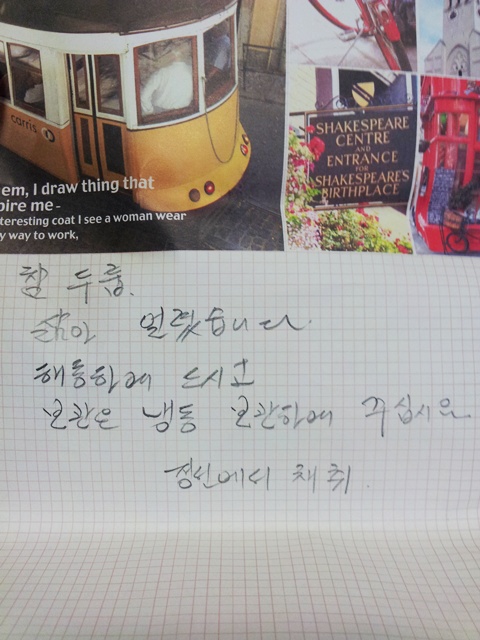 carris
em, I draw thing that
pire me -
teresting coat I see a woman wear
y way to work,
SHAKESPEARE
CENTRE
AND
ENTRANCE
FOR
SHAKESPEARE'S
BIRTHPLACE
참 두릅.
삶아 얼렸습니다.
해동하여 드시고
보관은 냉동 보관하여 주십시요
정선에서 채취.